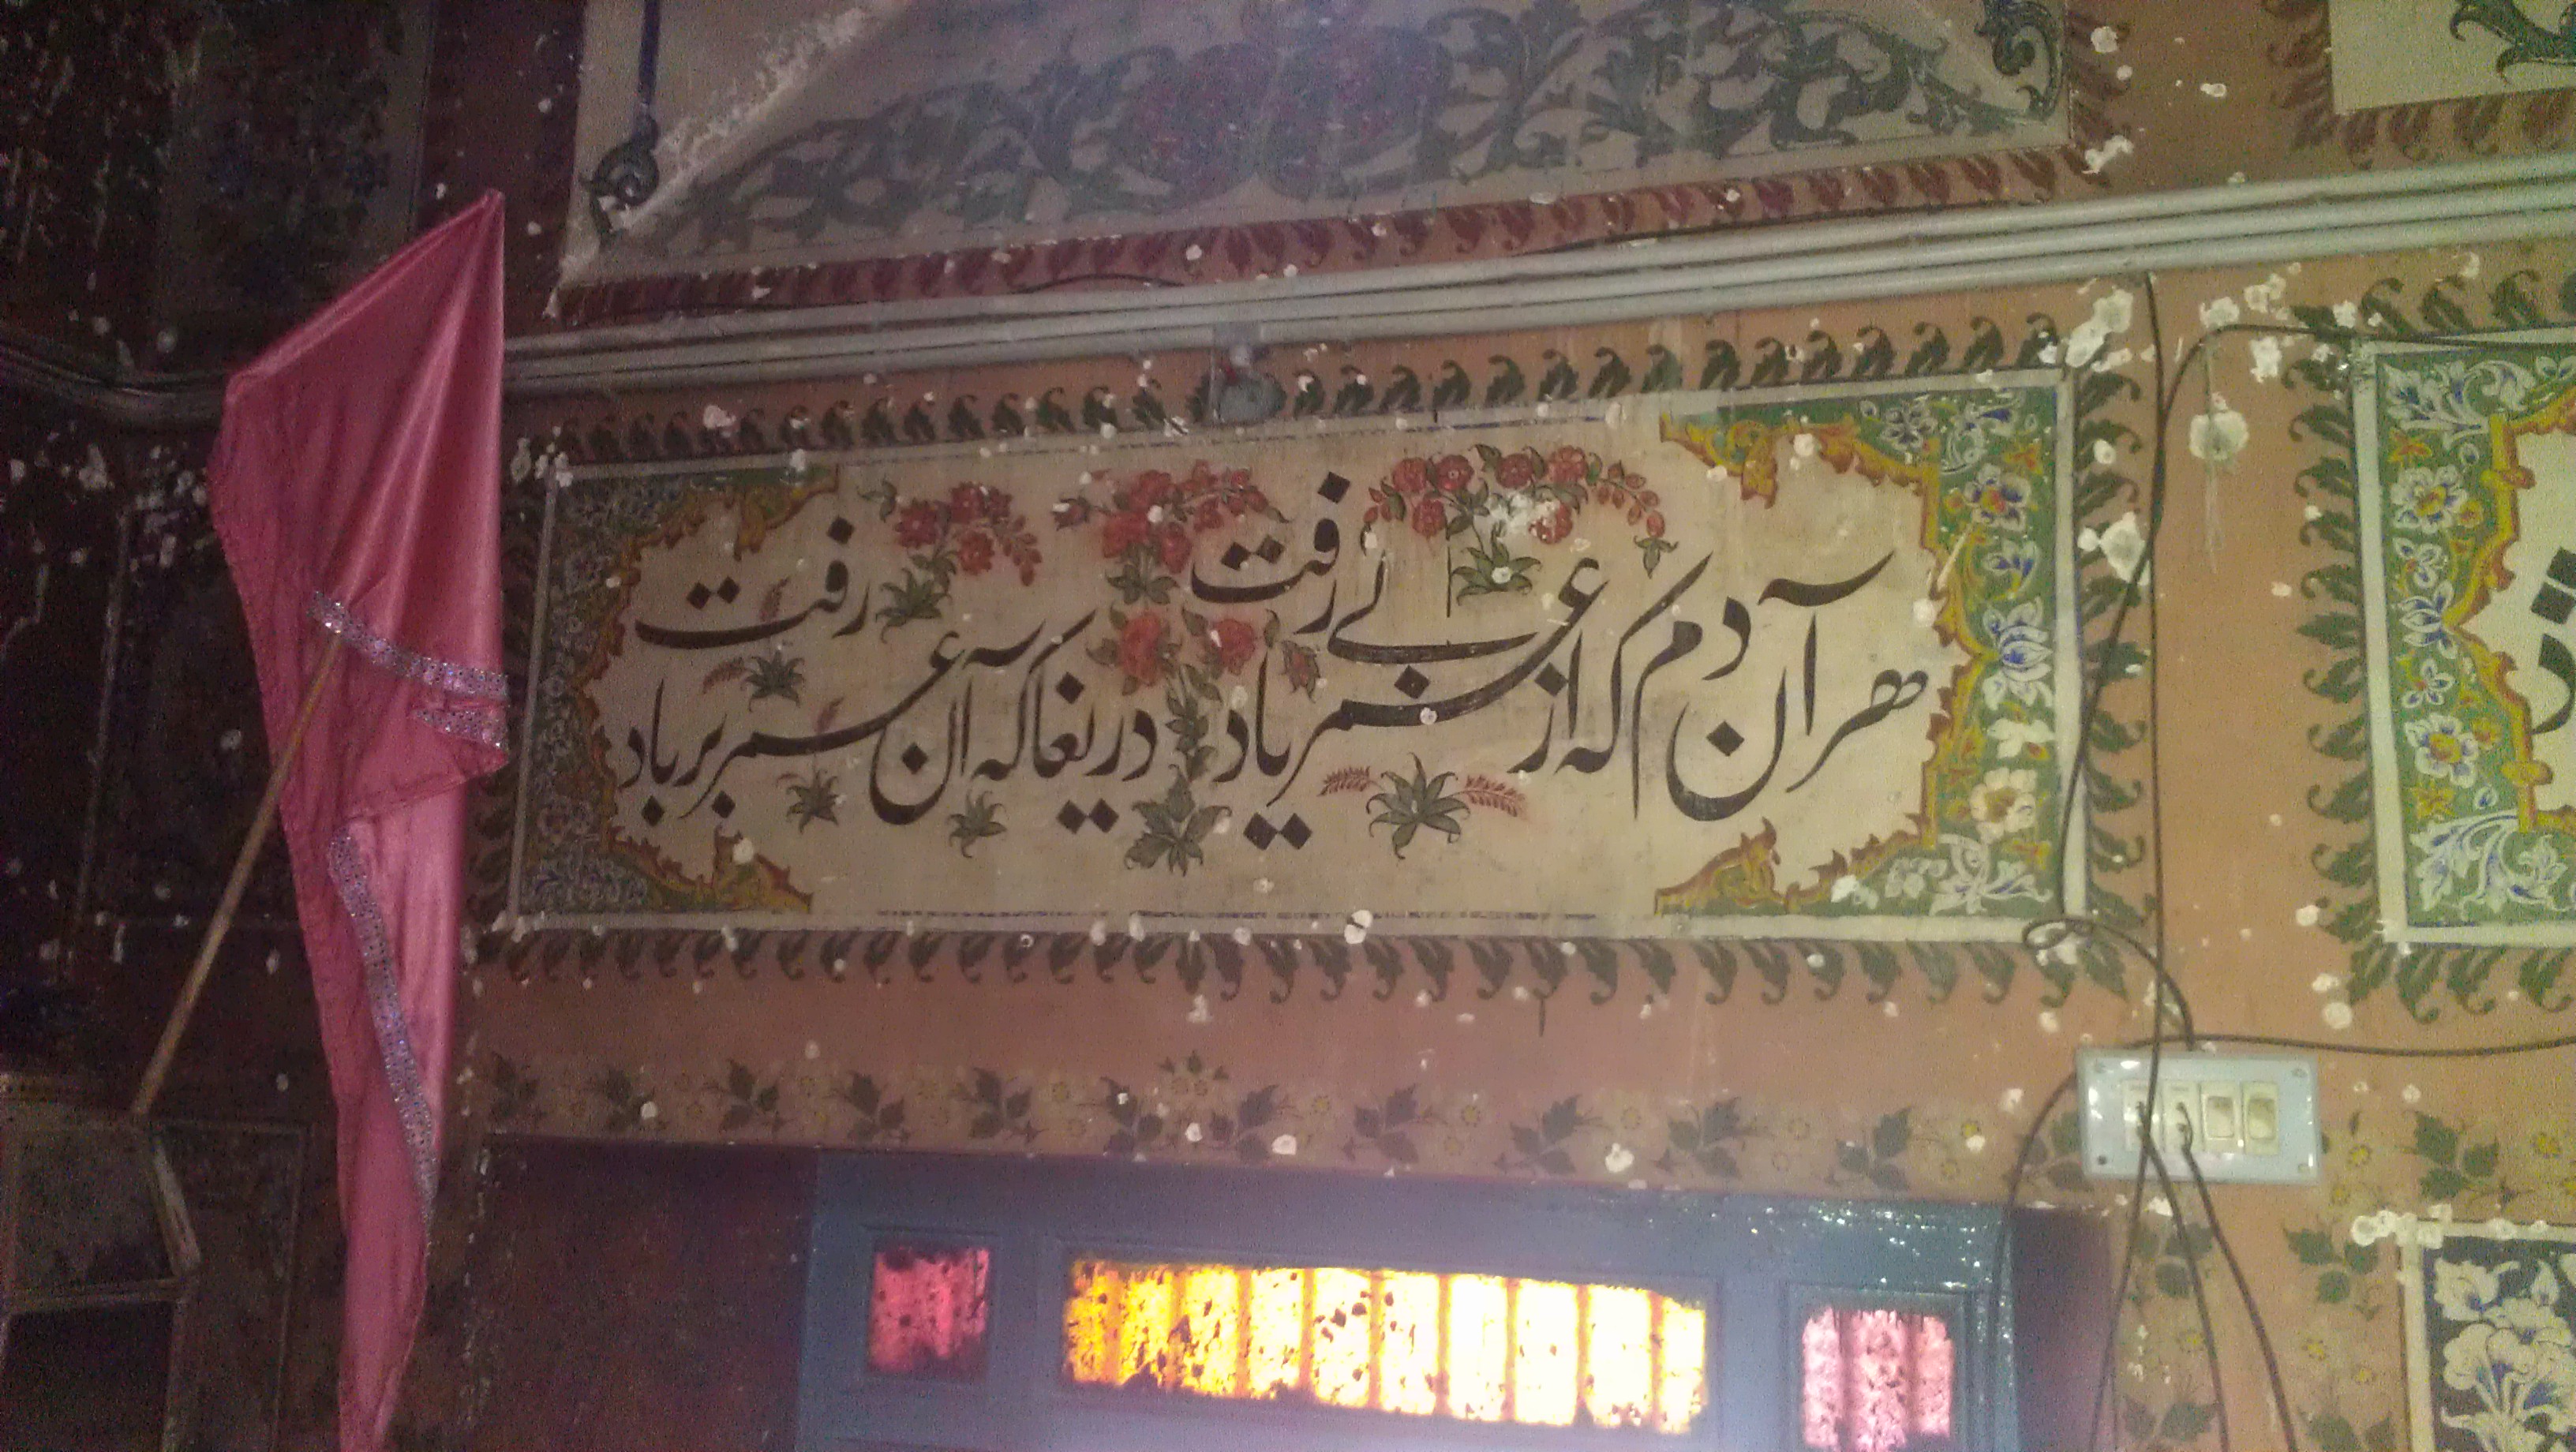 هر آن دم که از عمر بے یاد رفت دریغا که آن عمر بر باد رفت